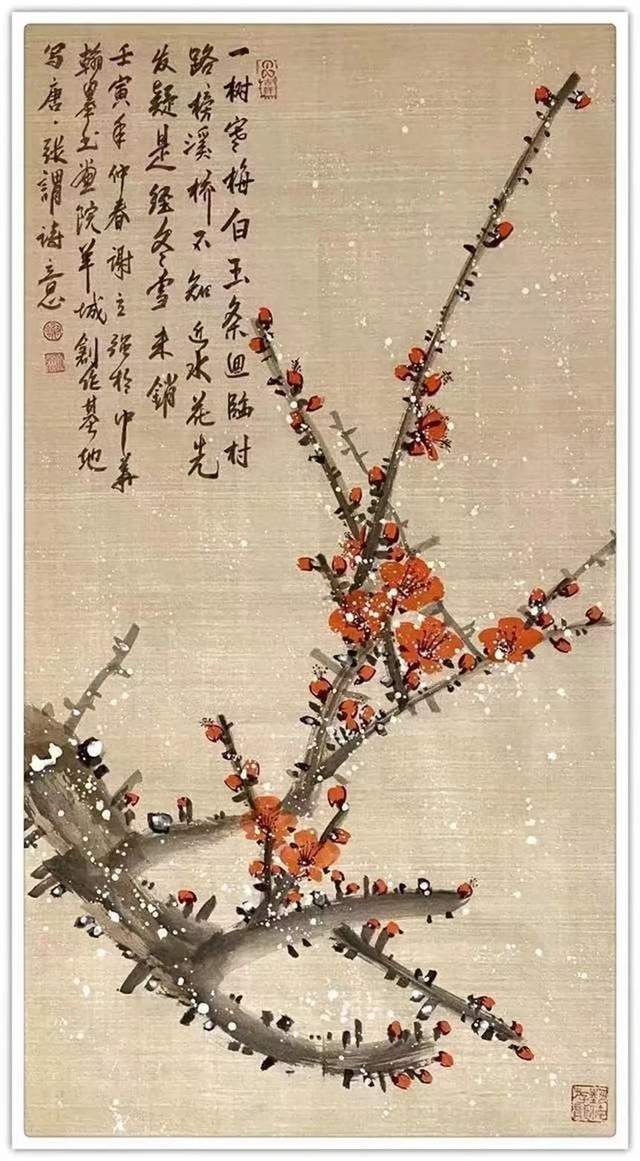 一树寒梅白玉条迴临村
路榜溪桥不知近水花先
发疑是经冬雪未銷
壬寅年仲春谢立强於中華
翰墨书畫院羊城創作基地
写唐·张謂诗意